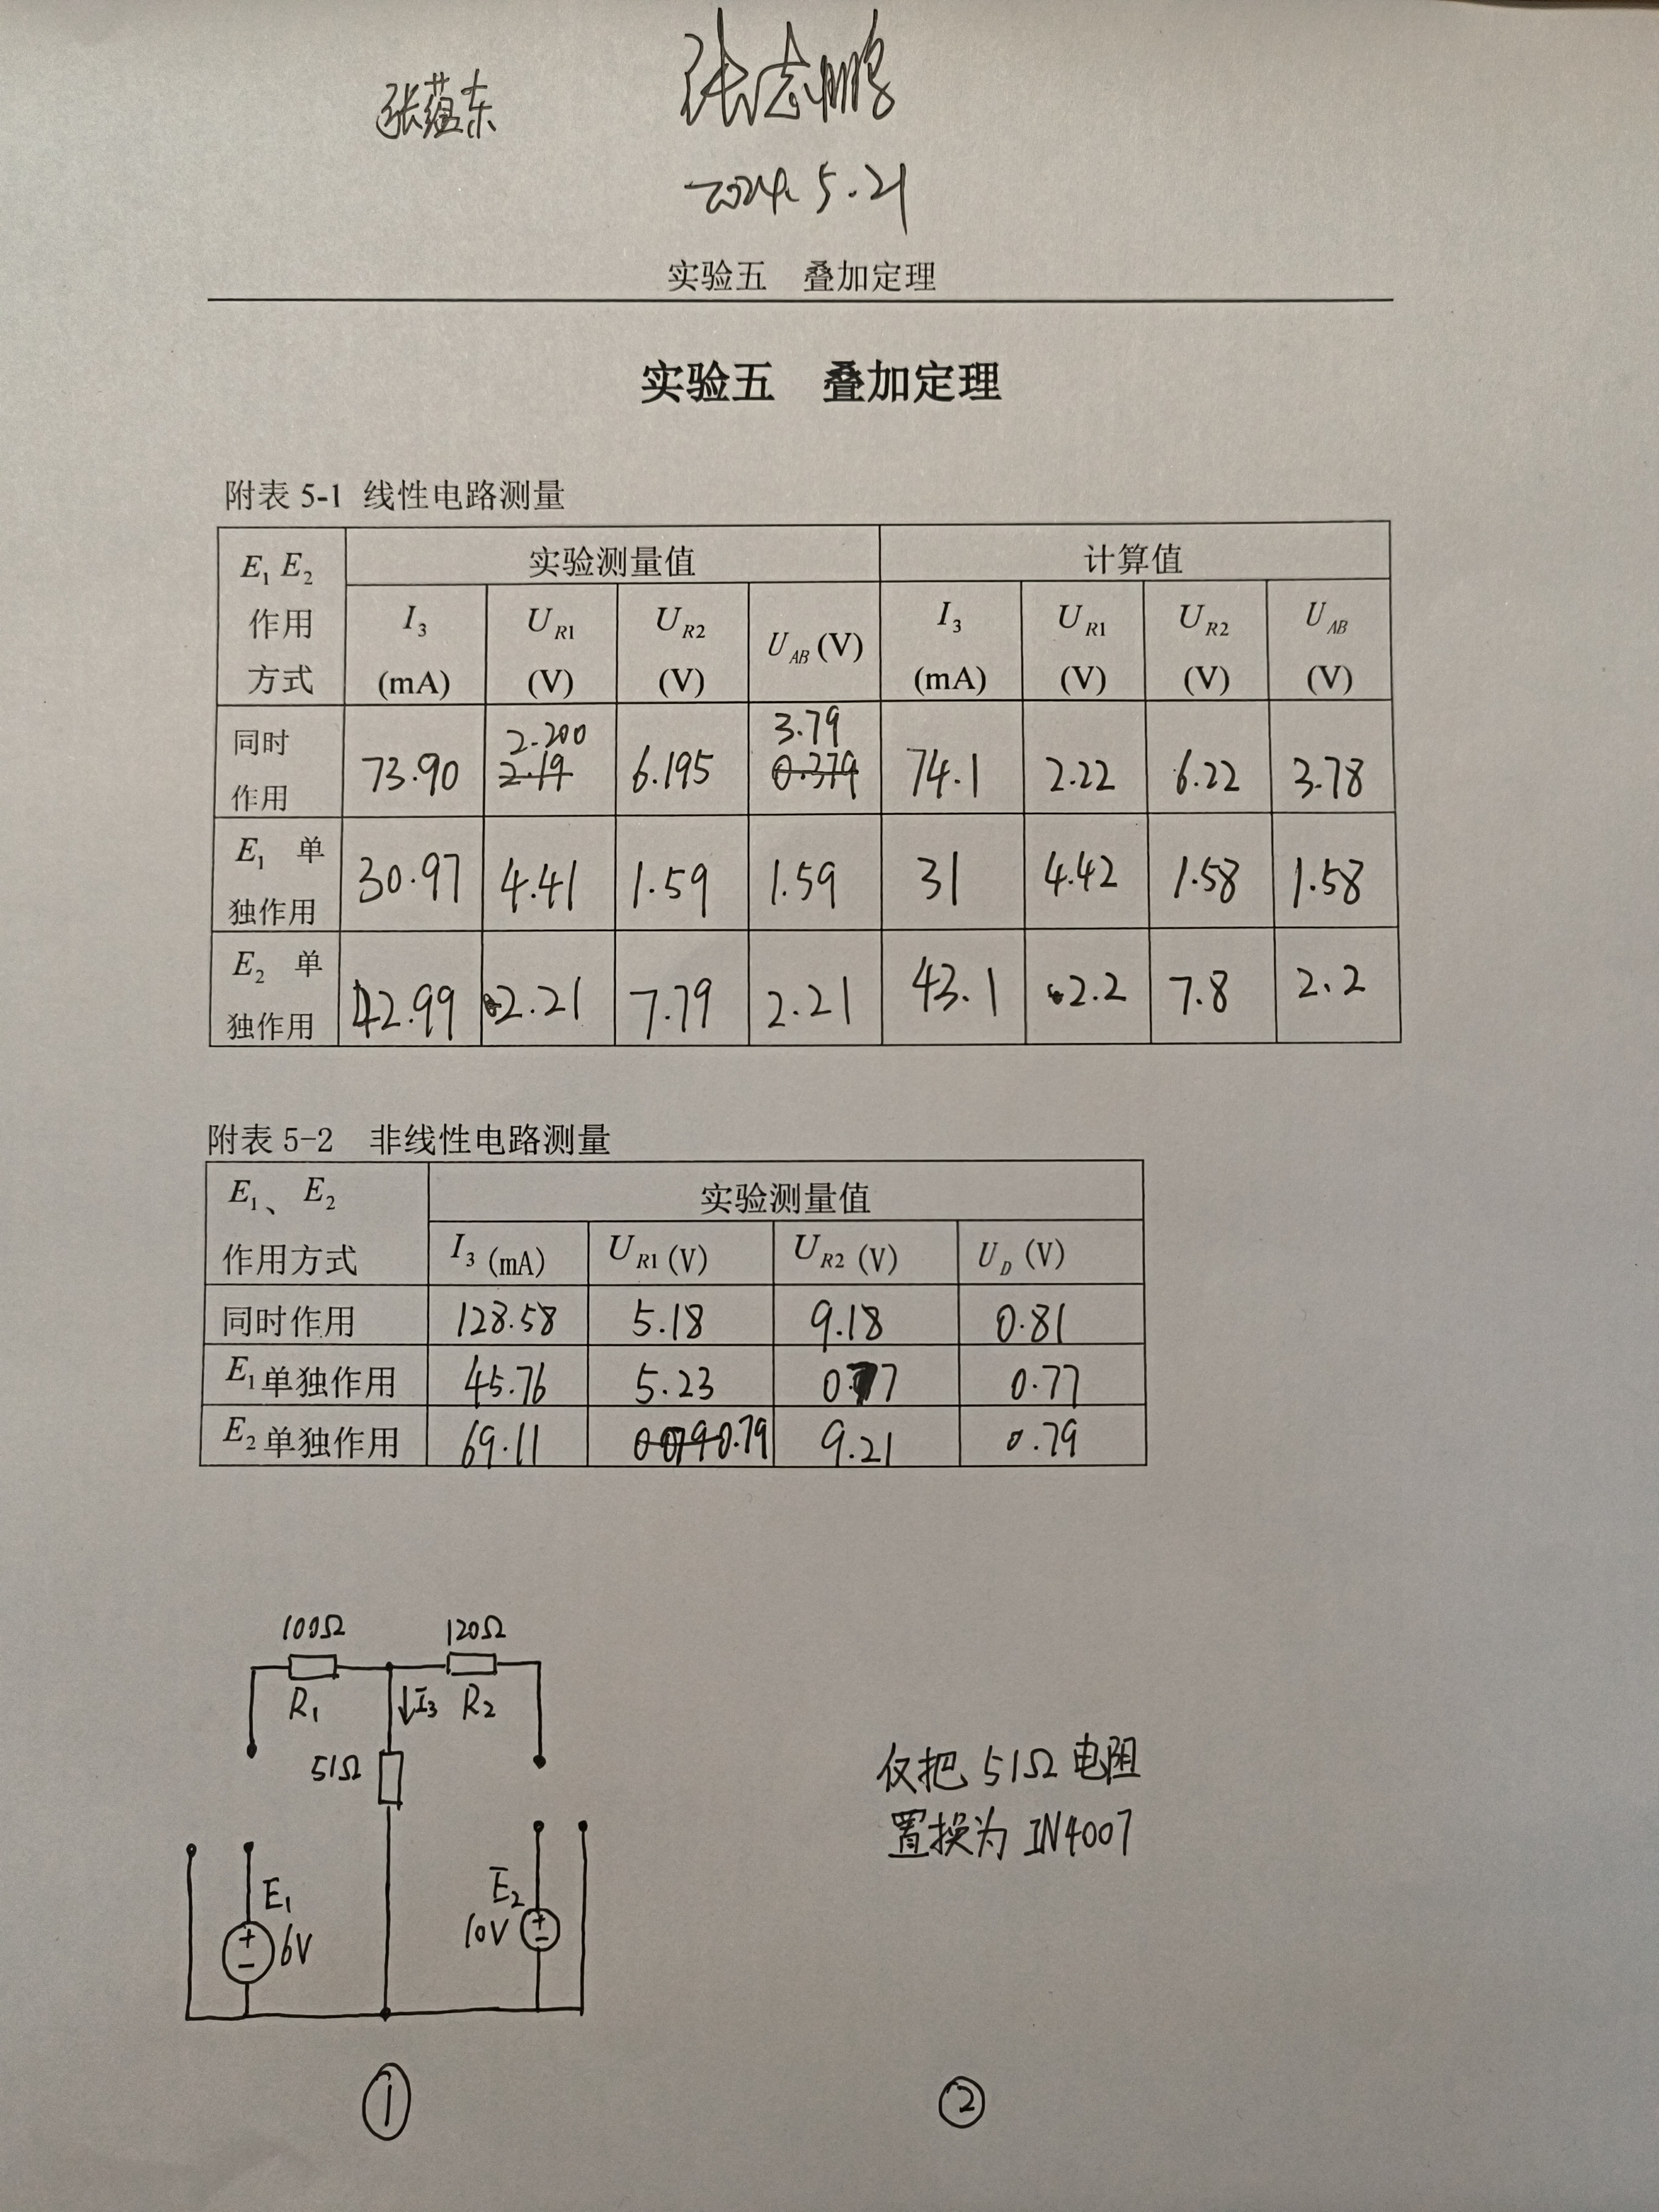 张蕴东 张志鹏
2024.5.21
实验五 叠加定理
实验五 叠加定理
附表 5-1 线性电路测量
E1 E2 作用方式 实验测量值 计算值
I3 (mA) UR1 (V) UR2 (V) UAB (V) I3 (mA) UR1 (V) UR2 (V) UAB (V)
同时作用 73.90 2.200 2.19 6.195 3.79 0.379 74.1 2.22 6.22 3.78
E1 单独作用 30.97 4.41 1.59 1.59 31 4.42 1.58 1.58
E2 单独作用 42.99 2.21 7.79 2.21 43.1 2.2 7.8 2.2
附表 5-2 非线性电路测量
E1、E2 作用方式 实验测量值
I3 (mA) UR1 (V) UR2 (V) UD (V)
同时作用 128.58 5.18 9.18 0.81
E1单独作用 45.76 5.23 0.77 0.77
E2单独作用 69.11 0.79 9.21 0.79
100Ω 120Ω
R1 I3 R2
51Ω
E1 6V
E2 10V
仅把 51Ω 电阻
置换为 IN4007
① ②